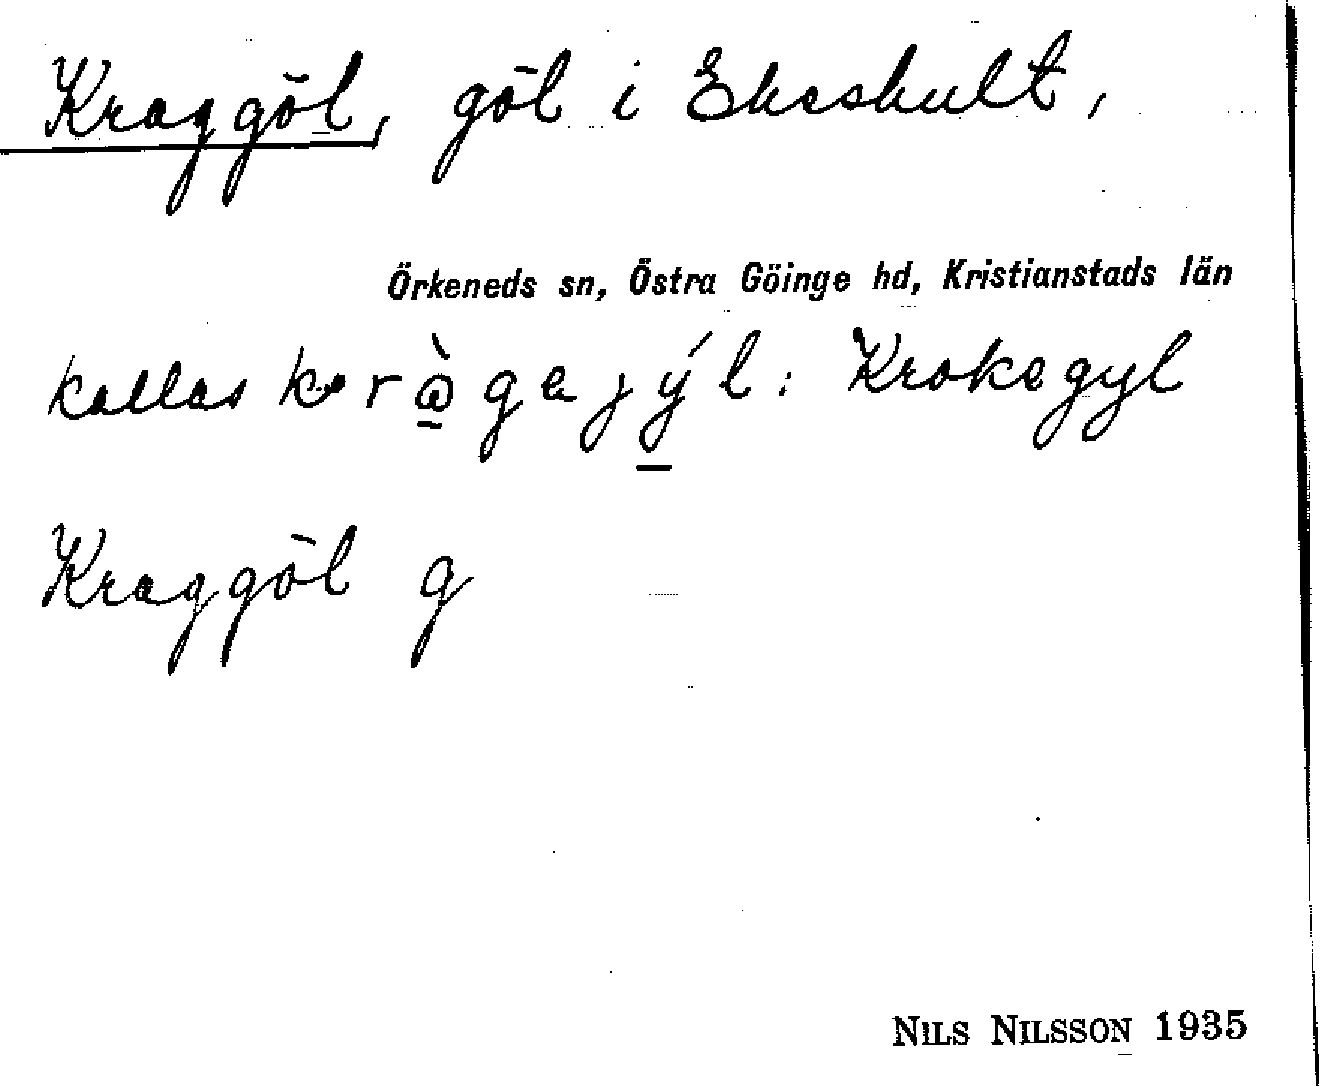 Kraggöl, göl i Ekeshult,
Örkeneds sn, Östra Göinge hd, Kristianstads län
kallas : Krokegyl
Kraggöl g
NILS NILSSON 1935